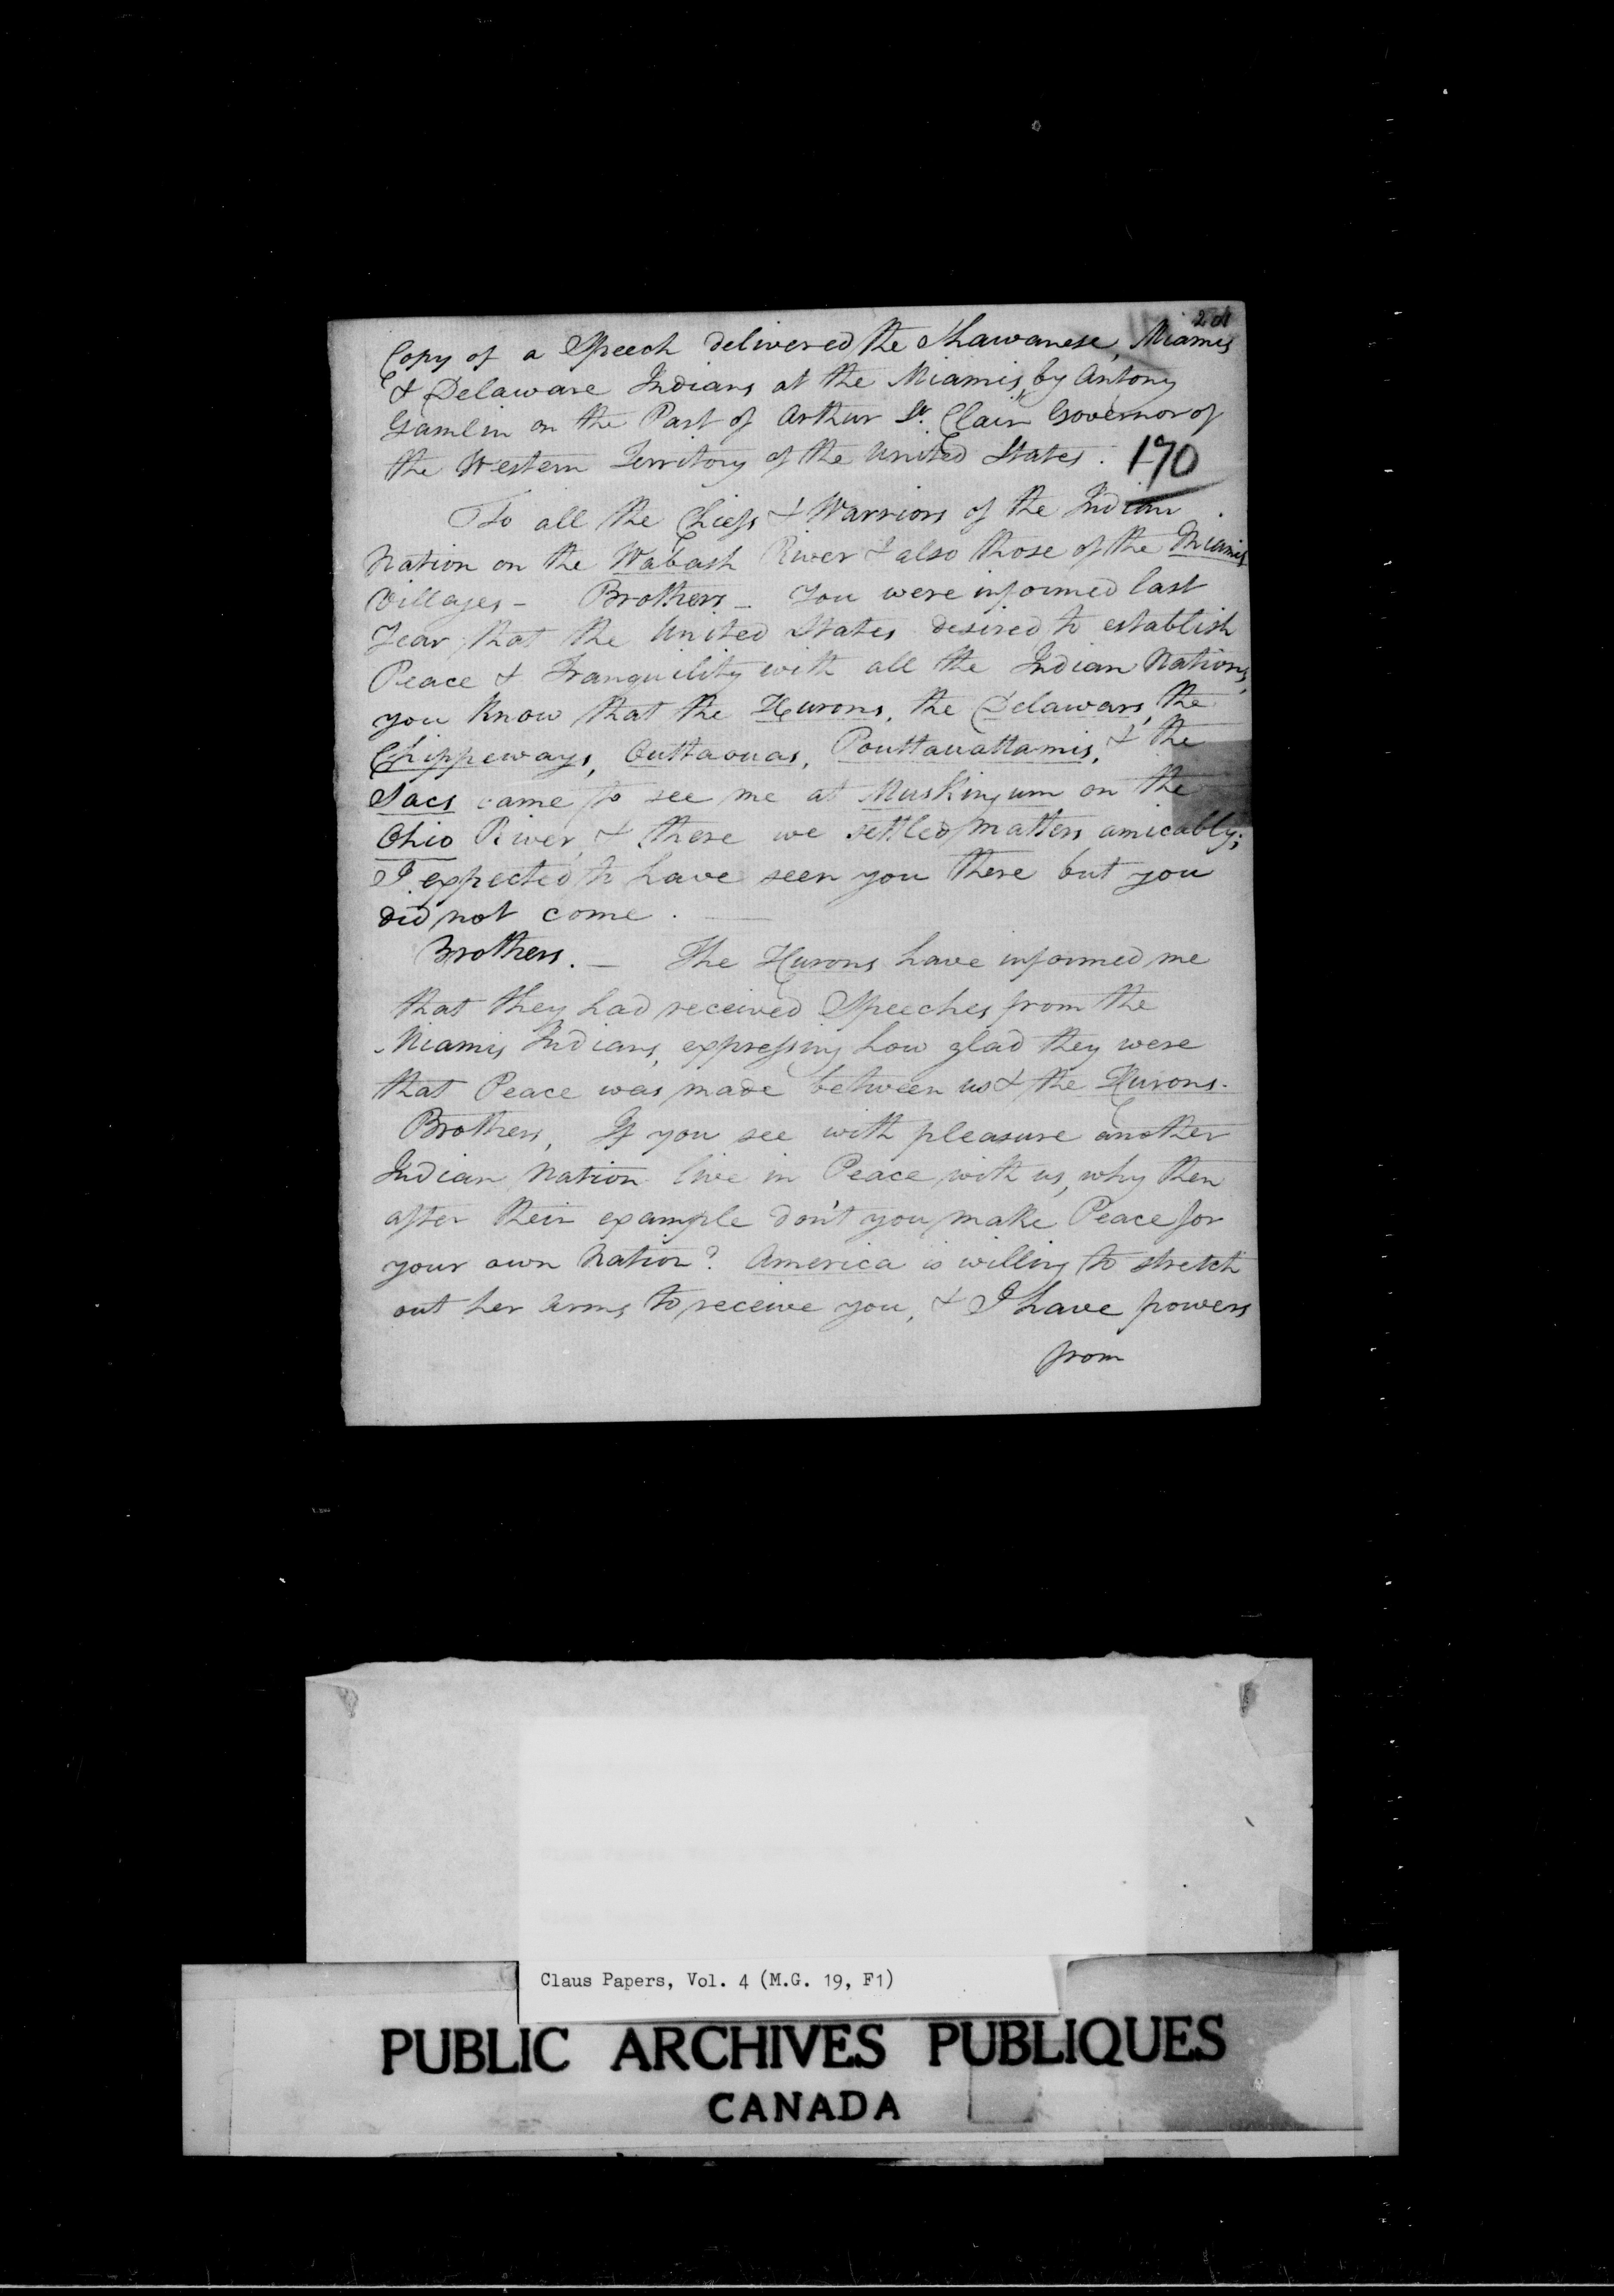 201
Copy of a Speech delivered the Shawanese, Miamis
& Delaware Indians at the Miamis, by Antony
Gamlin on the Part of Arthur St. Clair Governor of
the Western Territory of the United States.
170
To all the Chiefs & Warriors of the Indian
Nation on the Wabash River & also those of the Miamis
Villages - Brothers - You were informed last
Year, that the United States desired to establish
Peace & Tranquility with all the Indian Nations,
you know that the Hurons, the Delawars, the
Chippeways, Outtaouas, Pouttauattamis, & the
Sacs came to see me at Muskingum on the
Ohio River, & there we settled matters amicably;
I expected to have seen you there but you
did not come. —
Brothers. — The Hurons have informed me
that they had received Speeches from the
Miamis Indians, expressing how glad they were
that Peace was made between us & the Hurons.
Brothers, If you see with pleasure another
Indian Nation live in Peace with us, why then
after their example don't you make Peace for
your own Nation? America is willing to stretch
out her arms to receive you, & I have powers
from
Claus Papers, Vol. 4 (M.G. 19, F1)
PUBLIC ARCHIVES PUBLIQUES
CANADA